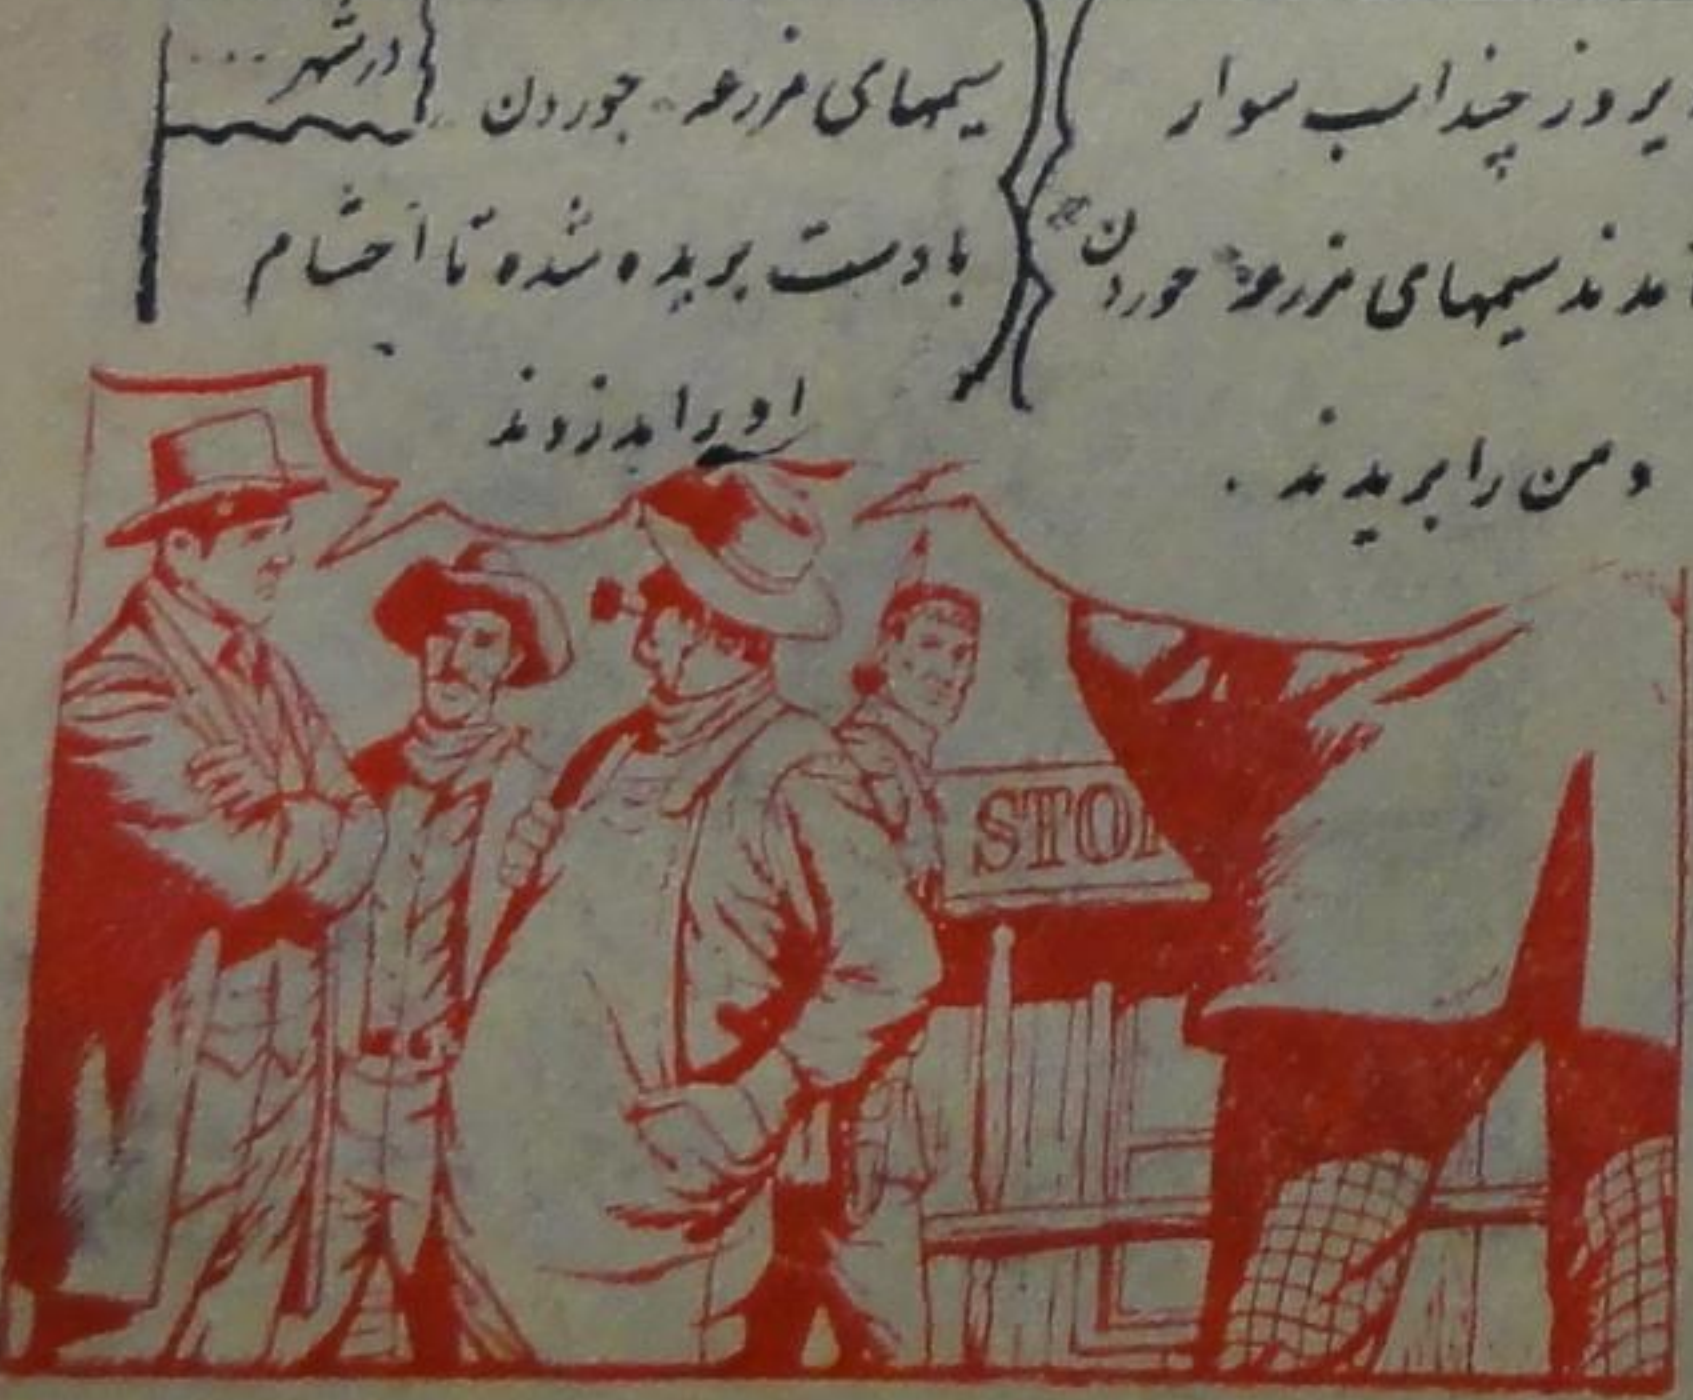 در شهر ...
یروز چند اسب سوار
مدند سیمهای مزرعه جوردن
و من را بریدند .
سیمهای مزرعه جوردن
با دست بریده شده تا احشام
او را بدزدند
STOP